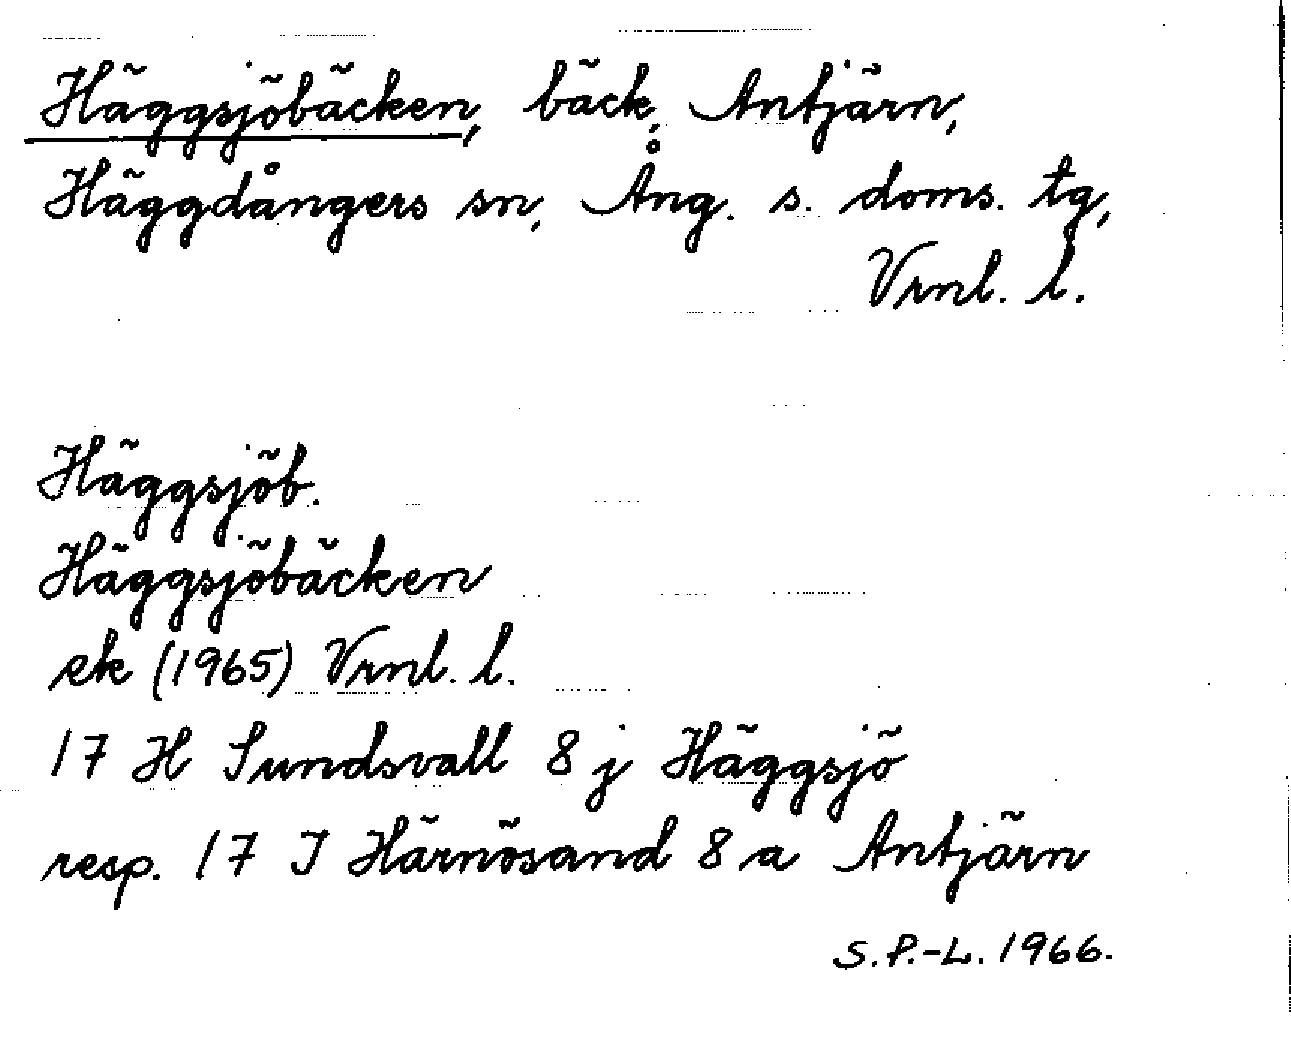 Häggsjöbäcken, bäck, Antjärn,
Häggdångers sn, Ång. s. doms. tg,
Vrnl. l.
Häggsjöb.
Häggsjöbäcken
ek (1965) Vrnl. l.
17 H Sundsvall 8 j Häggsjö
resp. 17 I Härnösand 8 a Antjärn
S.P.-L. 1966.